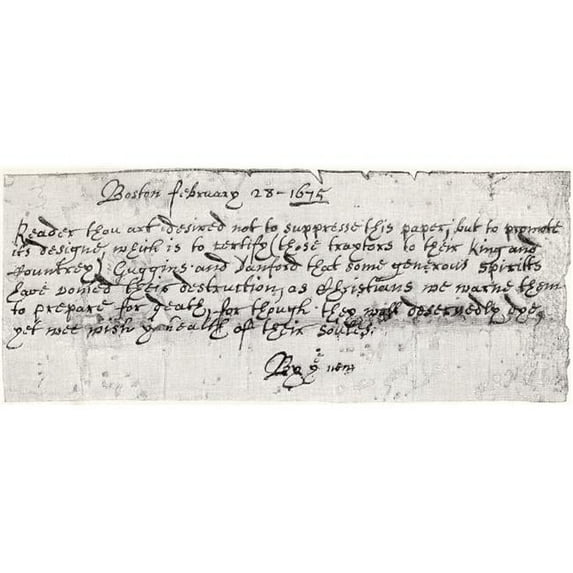 Boston february 28 - 1675
Reader thou art desired not to suppresse this paper, but to promote
its designe, which is to certify (those traytors to their king and
Countrey) Guggins and Danford that some generous spiritts
have vowed their destruction, as Christians we warne them
to prepare for death, for though they will deservedly dye,
yet wee wish ye health of their soules.
By ye new